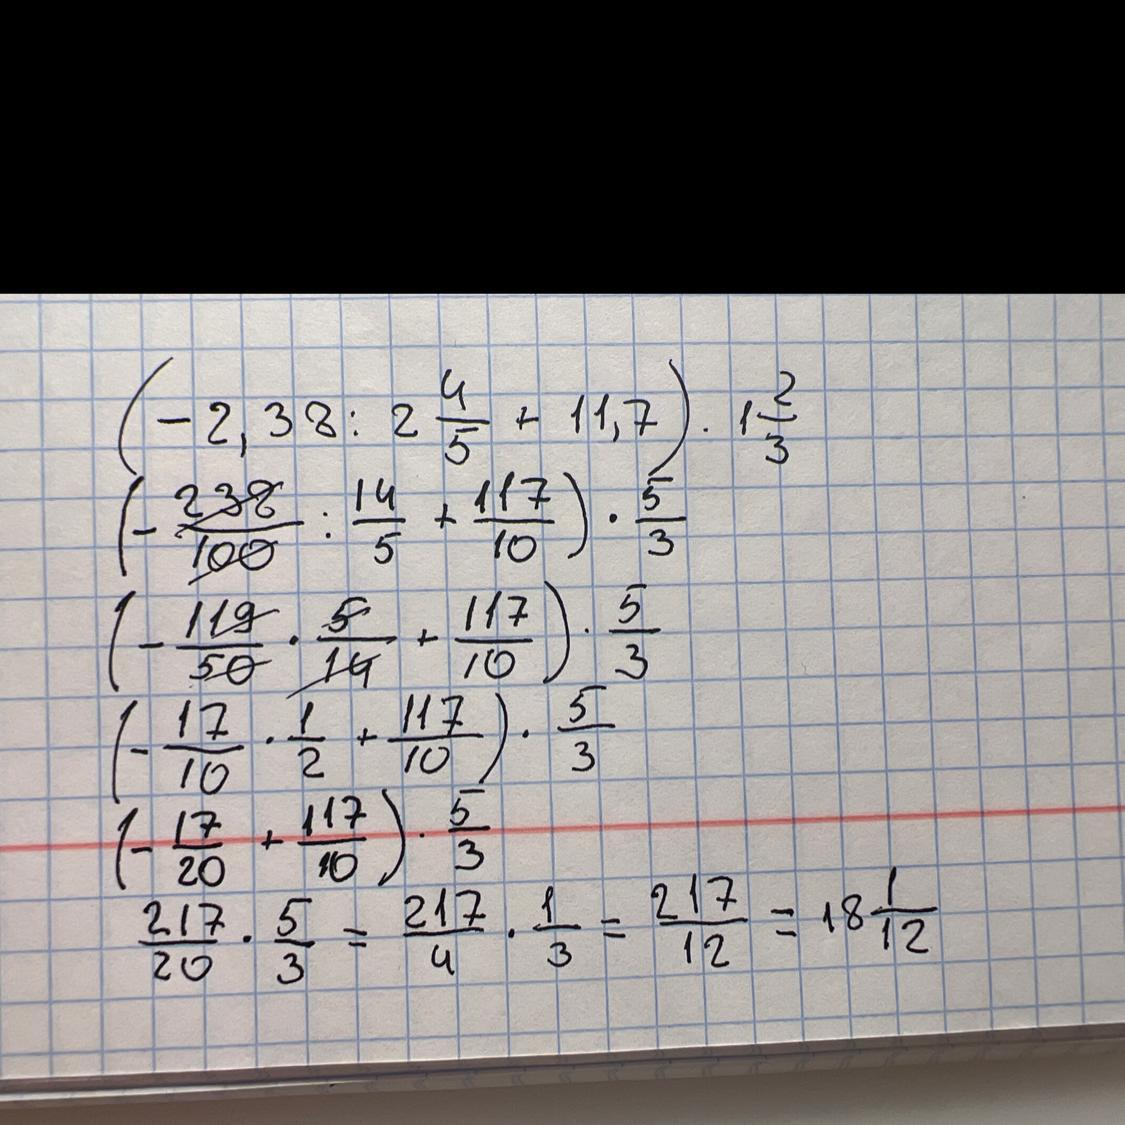 (-2,38 : 2 4/5 + 11,7) · 1 2/3
(-238/100 : 14/5 + 117/10) · 5/3
(-119/50 · 5/14 + 117/10) · 5/3
(-17/10 · 1/2 + 117/10) · 5/3
(-17/20 + 117/10) · 5/3
217/20 · 5/3 = 217/4 · 1/3 = 217/12 = 18 1/12